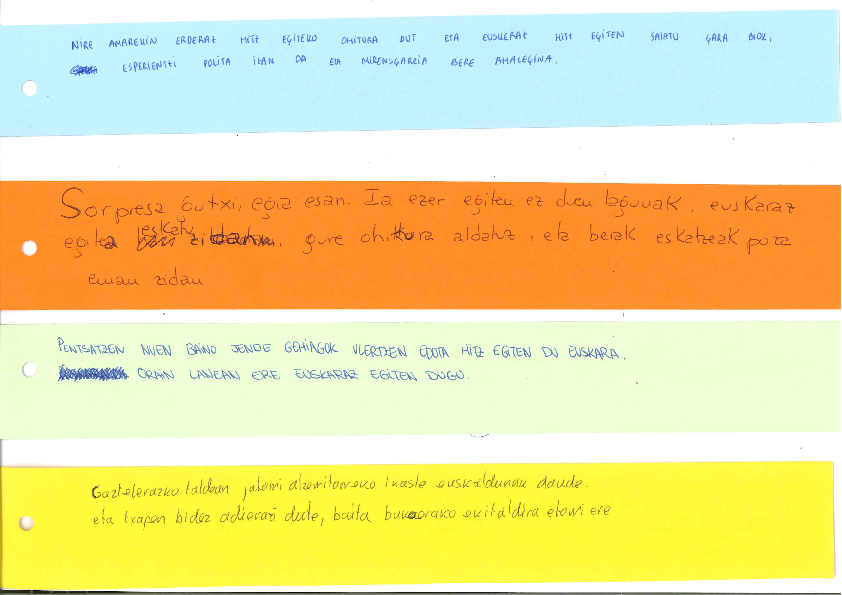 NIRE AMAREKIN ERDERAZ HITZ EGITEKO OHITURA DUT ETA EUSKERAZ HITZ EGITEN SAIATU GARA BIOK,
ESPERIENTZI POLITA IZAN DA ETA MIRENSGARRIA BERE AHALEGINA.
Sorpresa gutxi, egia esan. Ia ezer egiten ez duen lagunak, euskaraz
egitea eskatu zidan, gure ohitura aldatuz, eta berak eskatzeak poza
eman zidan
PENTSATZEN NUEN BAINO JENDE GEHIAGOK ULERTZEN EDOTA HITZ EGITEN DU EUSKARA.
ORAIN LANEAN ERE EUSKARAZ EGITEN DUGU.
Gaztelerazko taldean jatorri atzerritarreko ikasle euskaldunak daude.
eta txapen bidez adierazi dute, baita bukaerako ekitaldira etorri ere